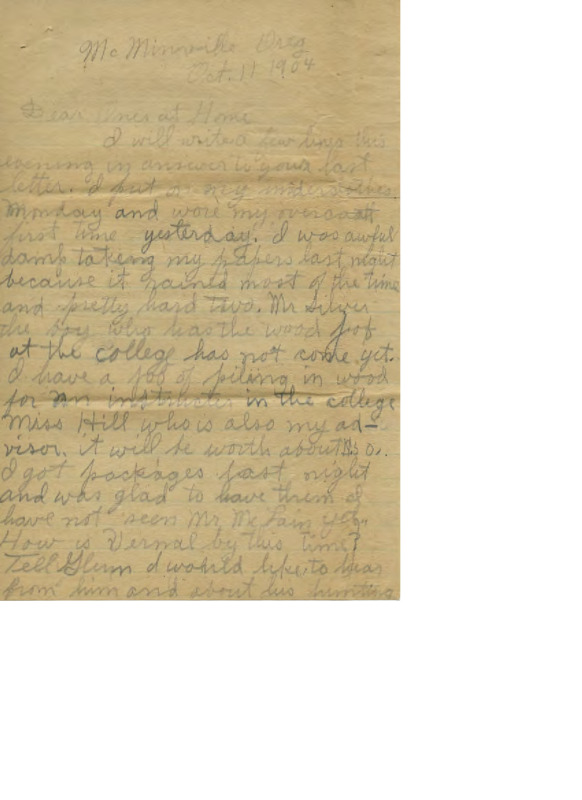 Mc Minnville Oreg
Oct. 11 1904
Dear Ones at Home
I will write a few lines this
evening in answer to your last
letter. I put on my underclothes
Monday and wore my overcoat
first time yesterday. I was awful
damp taking my papers last night
because it rained most of the time
and pretty hard two. Mr Silver
the boy who has the wood job
at the college has not come yet.
I have a job of piling in wood
for an instructer in the college
Miss Hill who is also my ad-
visor. it will be worth about
I got packages last night
and was glad to have them I
have not seen Mr Mc yet.
How is Vernal by this time?
Tell Glenn I would like to hear
from him and about his hunting